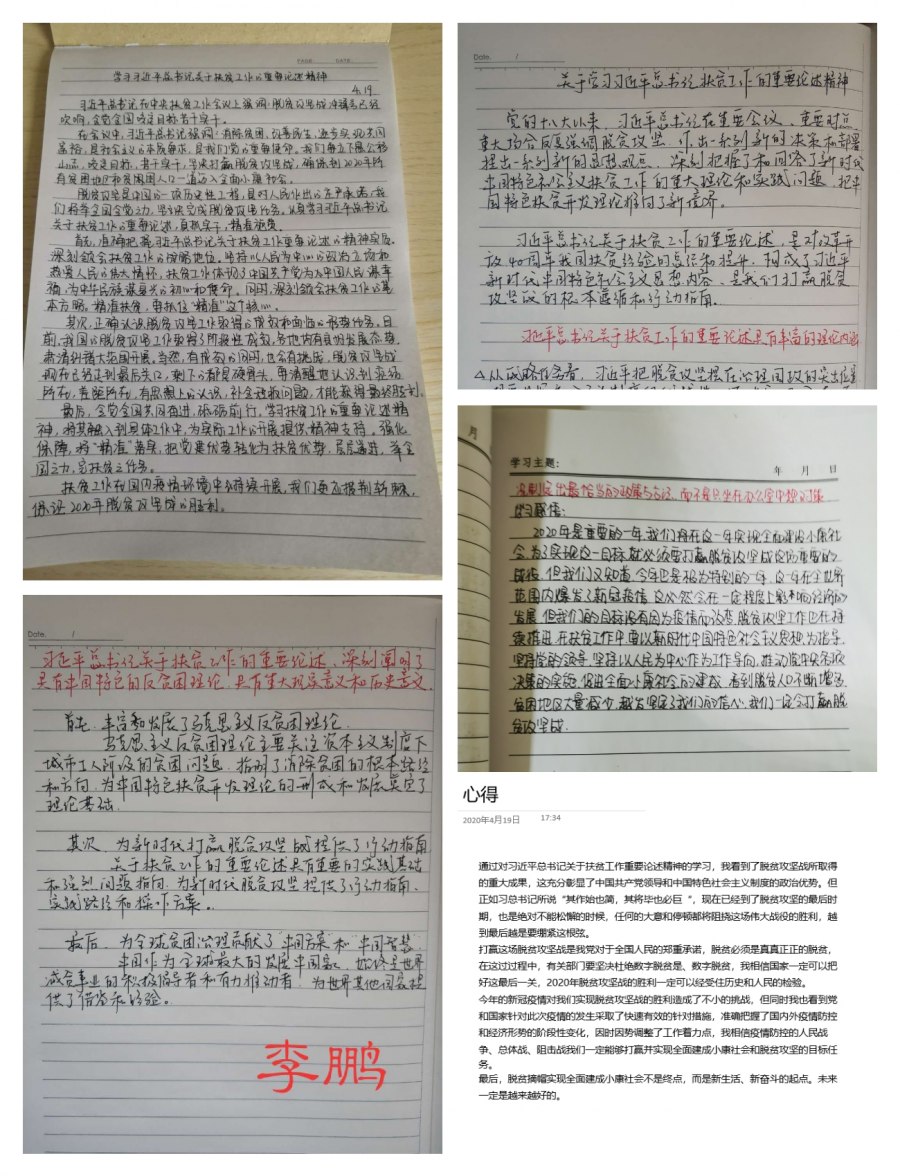 学习习近平总书记关于扶贫工作的重要论述精神
4.19
习近平总书记在中央扶贫工作会议上强调：脱贫攻坚战冲锋号已经
吹响，全党全国咬定目标、苦干实干。
在会议中，习近平总书记强调：消除贫困、改善民生、逐步实现共同
富裕，是社会主义的本质要求，是我们党的重要使命。我们要立下愚公移
山志，咬定目标、苦干实干，坚决打赢脱贫攻坚战，确保到2020年所
有贫困地区和贫困人口一道迈入全面小康社会。
脱贫攻坚是中国的一项历史性工程，是对人民作出的庄严承诺，我
们将举全国全党之力，坚决完成脱贫攻坚任务。认真学习习近平总书记
关于扶贫工作的重要论述，真抓实干，精准施策。
首先，准确把握习近平总书记关于扶贫工作重要论述的精神实质。
深刻领会扶贫工作的战略地位。坚持以人民为中心的政治立场和
热爱人民的伟大情怀，扶贫工作体现了中国共产党为中国人民谋幸
福，为中华民族谋复兴的初心和使命。同时，深刻领会扶贫工作的基
本方略。精准扶贫，要抓住“精准”这个核心。
其次，正确认识脱贫攻坚工作取得的成效和面临的形势任务。目
前，我国的脱贫攻坚工作取得了阶段性成效，各地均有良好发展态势，
肃清纠错大范围开展。当然，有成效的同时，也会有挑战，脱贫攻坚战
现在已经走到最后关口，剩下的都是硬骨头，要清醒地认识到差距
所在，重题所在，有思想上的认识，补全短板问题，才能获得最终胜利。
最后，全党全国共同奋进，砥砺前行。学习扶贫工作的重要论述精
神，将其融入到具体工作中，为实际工作的开展提供精神支持。强化
保障，将“精准”落实，把党建优势转化为扶贫优势，层层递进，举全
国之力，完扶贫之任务。
扶贫工作在国内疫情环境中会持续开展，我们更应披荆斩棘，
保证2020年脱贫攻坚战的胜利。
Date. /
关于学习习近平总书记扶贫工作的重要论述精神
党的十八大以来，习近平总书记在重要会议、重要时点、
重大场合反复强调脱贫攻坚，作出一系列新的决策和部署
提出一系列新的思想观点，深刻把握了和回答了新时代
中国特色社会主义扶贫工作的重大理论和实践问题，把中
国特色扶贫开发理论推向了新境界。
习近平总书记关于扶贫工作的重要论述，是对改革开
放40周年我国扶贫经验的总结和提升，构成了习近平
新时代中国特色社会主义思想内容，是我们打赢脱贫
攻坚战的根本遵循和行动指南。
习近平总书记关于扶贫工作的重要论述具有丰富的理论内涵
从战略任务看，习近平把脱贫攻坚摆在治理国政的突出位置
月
学习主题：
年 月 日
学习感悟：
2020年是重要的一年，我们将在这一年实现全面建设小康社
会，为了实现这一目标，就必须要打赢脱贫攻坚战这场重要的
战役，但我们又知道，今年也是极为特别的一年，这一年在全世界
范围内爆发了新冠疫情，这必然会在一定程度上影响经济的
发展，但我们的目标没有因为疫情而改变，脱贫攻坚工作也在持
续推进，在扶贫工作中，要以新时代中国特色社会主义思想为指导，
坚持党的领导，坚持以人民为中心作为工作导向，推动党中央各项
决策的实施，促进全面小康社会的建成，看到脱贫人口不断增多，
贫困地区大量减少，越发坚定了我们的信心，我们一定会打赢脱
贫攻坚战。
Date. /
习近平总书记关于扶贫工作的重要论述，深刻阐明了
具有中国特色的反贫困理论，具有重大现实意义和历史意义
首先，丰富和发展了马克思主义反贫困理论
马克思主义反贫困理论主要关注资本主义制度下
城市工人阶级的贫困问题，指明了消除贫困的根本路径
和方向，为中国特色扶贫开发理论的形成和发展奠定了
理论基础。
其次，为新时代打赢脱贫攻坚战提供了行动指南
关于扶贫工作的重要论述具有重要的实践基础
和强烈问题指向，为新时代脱贫攻坚提供了行动指南、
实践路径和操作方案。
最后，为全球贫困治理贡献了“中国方案”和“中国智慧”
中国作为全球最大的发展中国家，始终是世界
减贫事业的积极倡导者和有力推动者，为世界其他国家提
供了借鉴和经验。
李鹏
心得
2020年4月19日 17:34
通过对习近平总书记关于扶贫工作重要论述精神的学习，我看到了脱贫攻坚战所取得
的重大成果，这充分彰显了中国共产党领导和中国特色社会主义制度的政治优势。但
正如习总书记所说“其作始也简，其将毕也必巨“，现在已经到了脱贫攻坚的最后时
期，也是绝对不能松懈的时候，任何的大意和停顿都将阻挠这场伟大战役的胜利，越
到最后越是要绷紧这根弦。
打赢这场脱贫攻坚战是我党对于全国人民的郑重承诺，脱贫必须是真真正正的脱贫，
在这过过程中，有关部门要坚决杜绝数字脱贫是、数字脱贫，我相信国家一定可以把
好这最后一关，2020年脱贫攻坚战的胜利一定可以经受住历史和人民的检验。
今年的新冠疫情对我们实现脱贫攻坚战的胜利造成了不小的挑战，但同时我也看到党
和国家针对此次疫情的发生采取了快速有效的针对措施，准确把握了国内外疫情防控
和经济形势的阶段性变化，因时因势调整了工作着力点，我相信疫情防控的人民战
争、总体战、阻击战我们一定能够打赢并实现全面建成小康社会和脱贫攻坚的目标任
务。
最后，脱贫摘帽实现全面建成小康社会不是终点，而是新生活、新奋斗的起点。未来
一定是越来越好的。